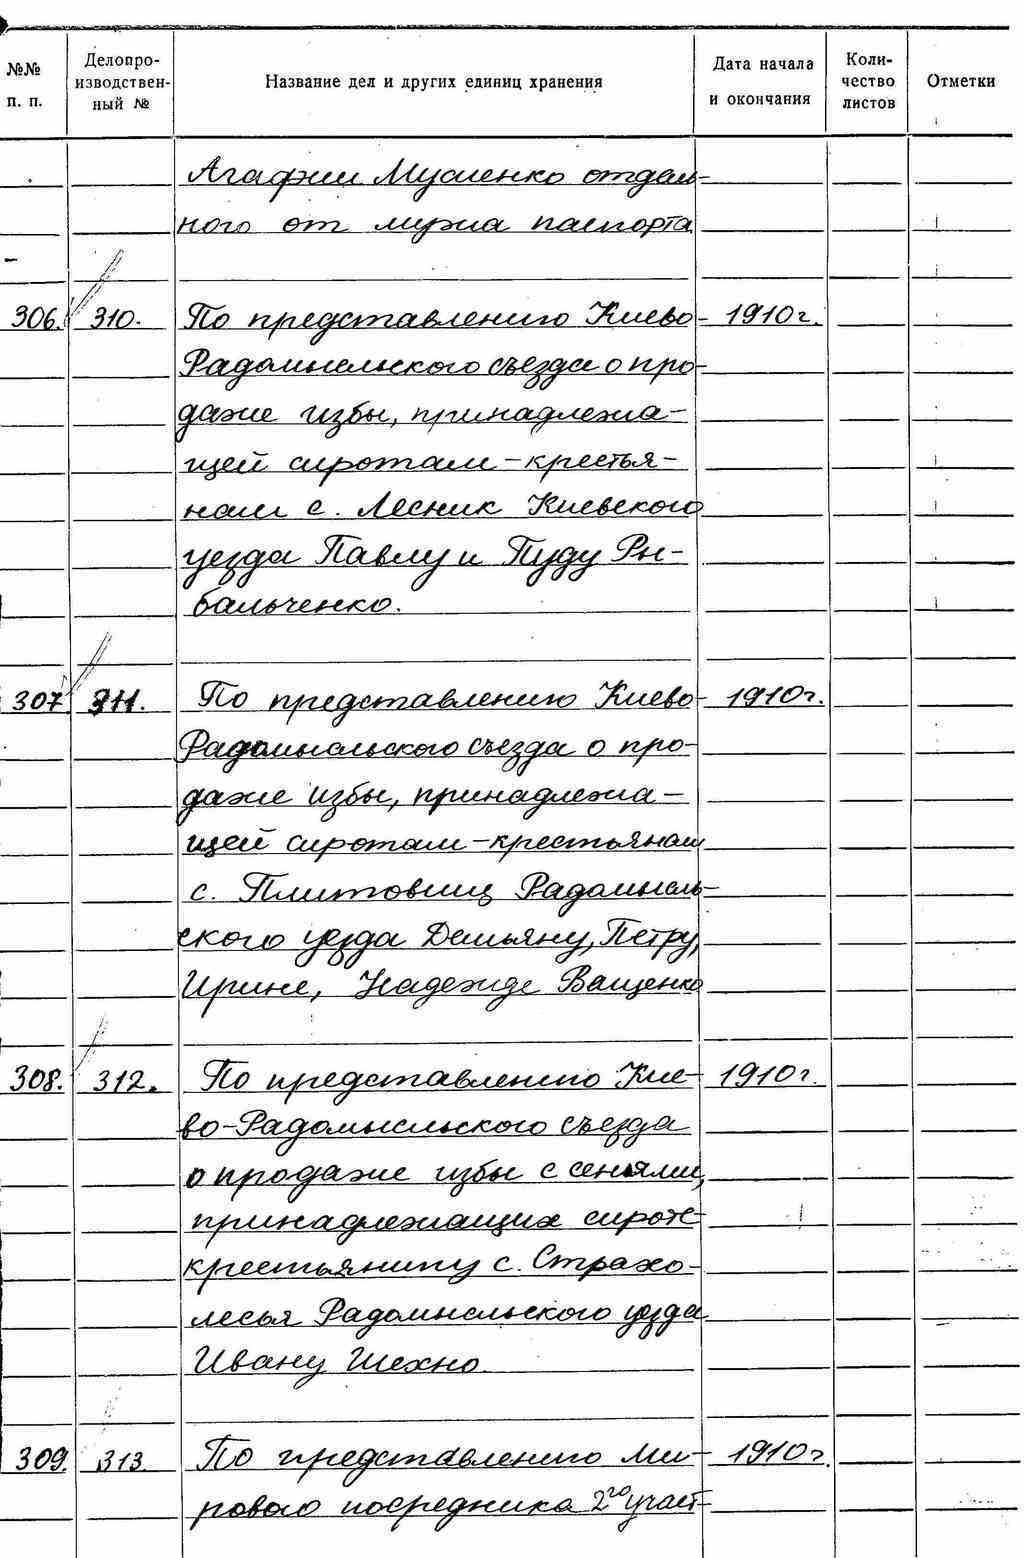 №№ п. п. Делопро-изводствен-ный № Название дел и других единиц хранения Дата начала и окончания Коли-чество листов Отметки
Агафии Мусиенко отдель-
ного от мужа паспорта
306. 310. По представлению Киево- 1910г.
Радомысльского съезда о про-
даже избы, принадлежа-
щей сиротам-крестья-
нам с. Лесник Киевского
уезда Павлу и Пуду Ры-
бальченко.
307. 311. По представлению Киево- 1910г.
Радомысльского съезда о про-
даже избы, принадлежа-
щей сиротам-крестьянам
с. Плитовищ Радомысль-
ского уезда Демьяну, Петру,
Ирине, Надежде Ващенко
308. 312. По представлению Кие- 1910г.
во-Радомысльского съезда
о продаже избы с сенями,
принадлежащих сироте-
крестьянину с. Страхо-
лесья Радомысльского уезда
Ивану Шехно.
309. 313. По представлению Ми- 1910г.
рового посредника 2го участ-